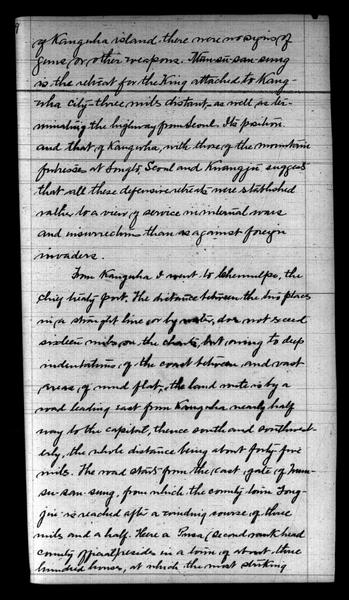 of Kangwha island there were no signs of
guns, or other weapons. Mun-su-san-sung
is the retreat for the King attached to Kang-
wha city three miles distant as well as ter-
minating the highway from Seoul. Its position
and that of Kangwha, with those of the mountain
fortresses at Songto, Seoul and Kwangju suggests
that all these defensive retreats were established
rather to a view of service in internal wars
and insurrections than as against foreign
invaders.
From Kangwha I went to Chemulpo, the
chief treaty port. The distance between the two places
in a straight line, or by water, does not exceed
sixteen miles on the charts, but owing to deep
indentations of the coast between and vast
areas of mud flats, the land route is by a
road leading east from Kangwha nearly half
way to the capital, thence south and southwest-
erly, the whole distance being about forty five
miles. The road starts from the east gate of Mun-
su-san-sung, from which the county town Tong-
jin is reached after a winding course of three
miles and a half. Here a Pusa (second rank head
county official) resides in a town of about three
hundred houses, at which the most striking